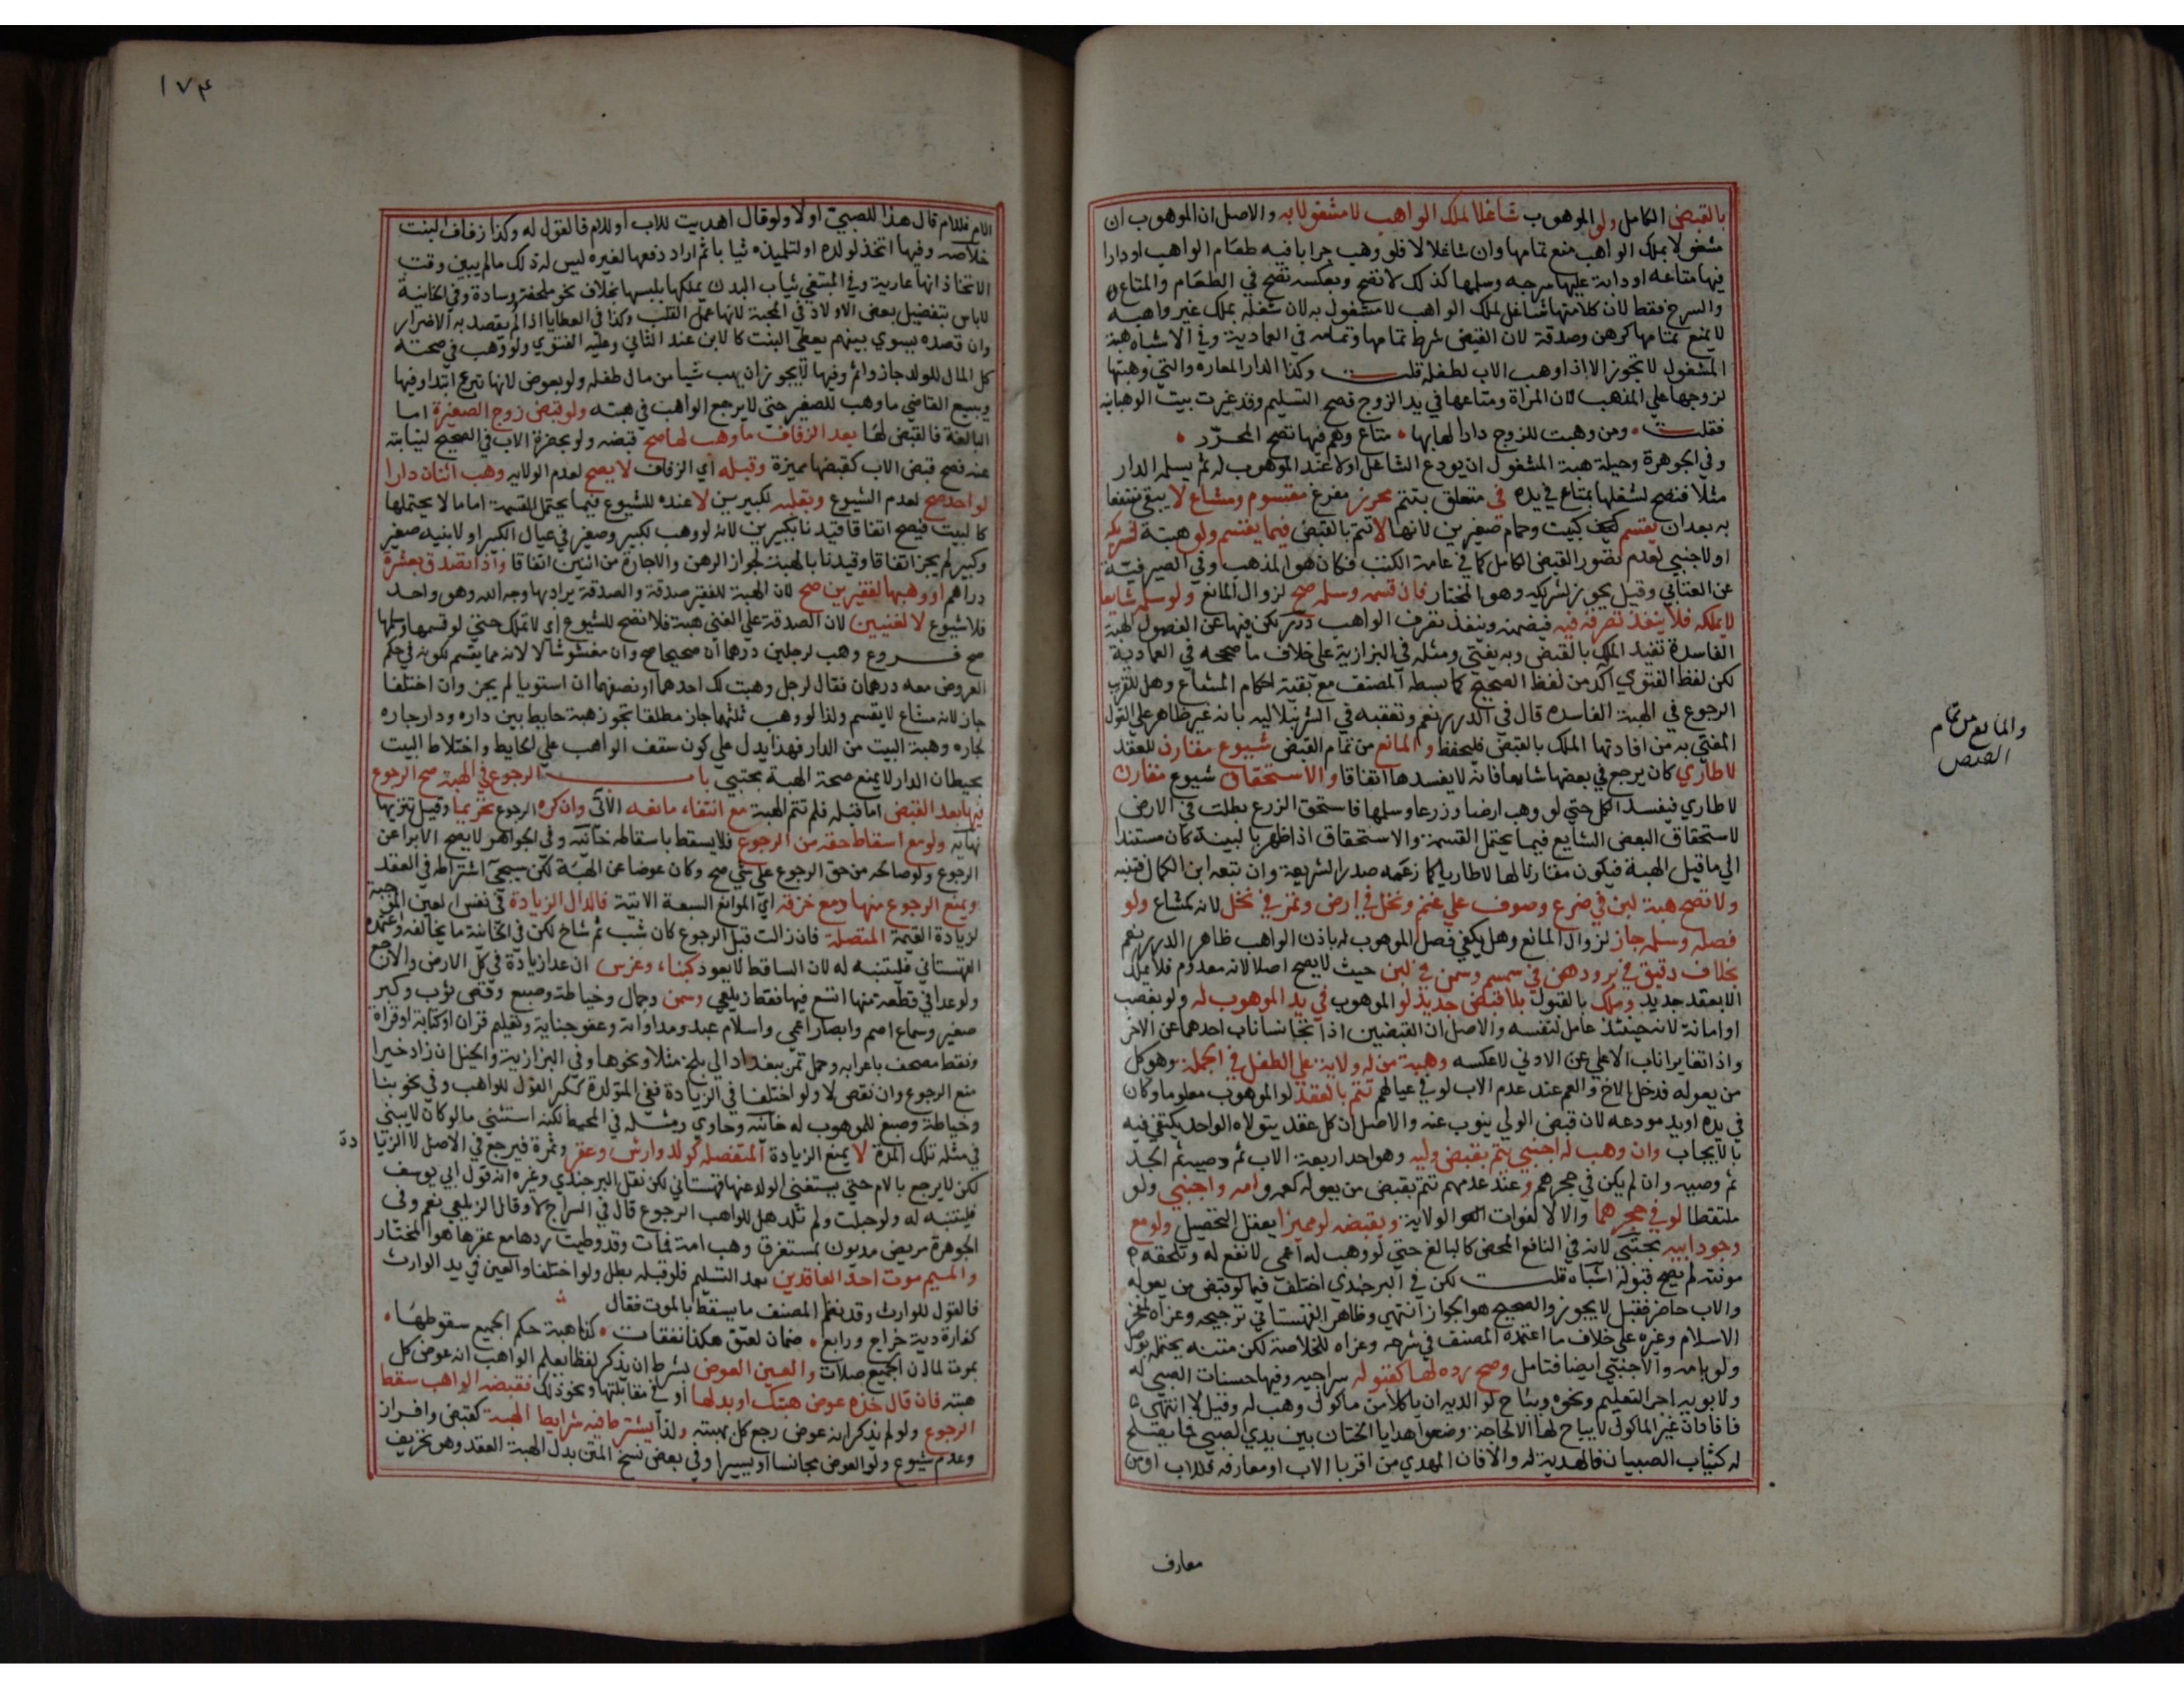 بالقبض الكامل ولو الموهوب شاغلا لملك الواهب لا مشغولا به والاصل ان الموهوب ان
مشغولا بملك الواهب منع تمامها وان شاغلا لا فلو وهب جرابا فيه طعام الواهب او دارا
فيها متاعه او دابة عليها سرجه وسلمها كذلك لا تصح وبعكسه تصح في الطعام والمتاع
والسرج فقط لان كلا منها شاغل لملك الواهب لا مشغول به لان شغله بملك غير واهبه
لا يمنع تمامها كرهن وصدقة لان القبض شرط تمامها وتمامه في العمادية وفي الاشباه هبة
المشغول لا تجوز الا اذا وهب الاب لطفله قلت وكذا الدار المعاره والتي وهبتها
لزوجها علي المذهب لان المراة ومتاعها في يد الزوج فصح التسليم وقد غيرت بيت الوهبانيه
فقلت ومن وهبت للزوج دارا لها بها متاع وهم فيها تصح المحرر
وفي الجوهرة وحيلة هبة المشغول ان يودع الشاغل اولا عند الموهوب له ثم يسلمه الدار
مثلا فتصح لشغلها بمتاع في يده في متعلق بتتم محرز مفرغ مقسوم ومشاع لا يبقي منتفعا
به بعد ان يقسم كبيت وحمام صغيرين لانها لا تتم بالقبض فيما يقسم ولو هبة لشريكه
او لاجنبي لعدم تصور القبض الكامل كما في عامة الكتب فكان هو المذهب وفي الصيرفية
عن العتابي وقيل يجوز لشريكه وهو المختار فان قسمه وسلمه صح لزوال المانع ولو سلمه شايعا
لا يملكه فلا ينفذ تصرفه فيه فيضمنه وينفذ تصرف الواهب درر لكن فيها عن الفصول الهبة
الفاسدة تفيد الملك بالقبض وبه يفتي ومثله في البزازية علي خلاف ما صححه في العمادية
لكن لفظ الفتوي آكد من لفظ الصحيح كما بسطه المصنف مع بقية احكام المشاع وهل للقريب
الرجوع في الهبة الفاسده قال في الدرر نعم وتعقبه في الشرنبلاليه بانه غير ظاهر علي القول
المفتي به من افادتها الملك بالقبض فليحفظ والمانع من تمام القبض شيوع مقارن للعقد
لا طاري كان يرجع في بعضها شايعا فانه لا يفسدها اتفاقا والاستحقاق شيوع مقارن
لا طاري فيفسد الكل حتي لو وهب ارضا وزرعا وسلمها فاستحق الزرع بطلت في الارض
لاستحقاق البعض الشايع فيما يحتمل القسمة والاستحقاق اذا ظهر بالبينة كان مستندا
الي ما قبل الهبة فيكون مقارنا لها لا طاريا كما زعمه صدر الشريعة وان تبعه ابن الكمال فتنبه
ولا تصح هبة لبن في ضرع وصوف علي غنم ونخل في ارض وتمر في نخل لانه كمشاع ولو
فصله وسلمه جاز لزوال المانع وهل يكفي فصل الموهوب له باذن الواهب ظاهر الدرر نعم
بخلاف دقيق في بر ودهن في سمسم وسمن في لبن حيث لا يصح اصلا لانه معدوم فلا يملك
الا بعقد جديد وملك بالقبول بلا قبض جديد لو الموهوب في يد الموهوب له ولو بغصب
او امانة لانه حينئذ عامل لنفسه والاصل ان القبضين اذا تجانسا ناب احدهما عن الاخر
واذا تغايرا ناب الاعلي عن الادني لا عكسه وهبة من له ولاية علي الطفل في الجملة وهو كل
من يعوله فدخل الاخ والعم عند عدم الاب لو في عيالهم تتم بالعقد لو الموهوب معلوما وكان
في يده او يد مودعه لان قبض الولي ينوب عنه والاصل ان كل عقد يتولاه الواحد يكتفي فيه
بالايجاب وان وهب له اجنبي يتم بقبض وليه وهو احد اربعة الاب ثم وصيه ثم الجد
ثم وصيه وان لم يكن في حجرهم وعند عدمهم تتم بقبض من يعوله كعمه وامه واجنبي ولو
ملتقطا لو في حجرهما والا لا لفوات الولاية وبقبضه لو مميزا يعقل التحصيل ولو مع
وجود ابيه مجتبي لانه في النافع المحض كالبالغ حتي لو وهب له اعمي لا نفع له وتلحقه
مونته لم يصح قبوله اشباه قلت لكن في البرجندي اختلف فيما لو قبض من يعوله
والاب حاضر فقيل لا يجوز والصحيح هو الجواز انتهي وظاهر القهستاني ترجيحه وعزاه لفخر
الاسلام وغيره علي خلاف ما اعتمده المصنف في شرحه وعزاه للخلاصة لكن متنه يحتمله بوصل
ولو بامه والاجنبي ايضا فتامل وصح رده لها كقبوله سراجيه وفيها حسنات الصبي له
ولابويه اجر التعليم ونحوه ويباح لوالديه ان ياكلا من ماكول وهب له وقيل لا انتهي
فافاد ان غير الماكول لا يباح لهما الا لحاجة وضعوا هدايا الختان بين يدي الصبي فما يصلح
له كثياب الصبيان فالهدية له والا فان المهدي من اقربا الاب او معارفه فللاب او من
معارف
والمانع من تمام
القبض
١٧٤
الام فللام قال هذا للصبي او لا ولو قال اهديت للاب او للام فالقول له وكذا زفاف البنت
خلاصه وفيها اتخذ لولده او لتلميذه ثيابا ثم اراد دفعها لغيره ليس له ذلك ما لم يبين وقت
الاتخاذ انها عارية وفي المبتغي ثياب البدن يملكها بلبسها بخلاف نحو ملحفة ووسادة وفي الخانية
لا باس بتفضيل بعض الاولاد في المحبة لانها عمل القلب وكذا في العطايا اذا لم يقصد به الاضرار
وان قصده يسوي بينهم يعطي البنت كالابن عند الثاني وعليه الفتوي ولو وهب في صحته
كل المال للولد جاز واثم وفيها لا يجوز ان يهب شيا من مال طفله ولو بعوض لانها تبرع ابتدا وفيها
ويبيع القاضي ما وهب للصغير حتي لا يرجع الواهب في هبته ولو قبض زوج الصغيرة اما
البالغة فالقبض لها بعد الزفاف ما وهب لها صح قبضه ولو بحضرة الاب في الصحيح لنيابته
عنه فصح قبض الاب كقبضها مميزة وقبله اي الزفاف لا يصح لعدم الولايه وهب اثنان دارا
لواحد صح لعدم الشيوع وبقلبه لكبيرين لا عنده للشيوع فيما يحتمل القسمة اما ما لا يحتملها
كالبيت فيصح اتفاقا قيدنا بكبيرين لانه لو وهب لكبير وصغير في عيال الكبير او لابنيه صغير
وكبير لم يجز اتفاقا وقيدنا بالهبة لجواز الرهن والاجارة من اثنين اتفاقا واذا تصدق بعشرة
دراهم او وهبها لفقيرين صح لان الهبة للفقير صدقة والصدقة يراد بها وجه الله وهو واحد
فلا شيوع لا لغنيين لان الصدقة علي الغني هبة فلا تصح للشيوع اي لا تملك حتي لو قسمها وسلمها
صح فروع وهب لرجلين درهما ان صحيحا صح وان مغشوشا لا لانه مما يقسم لكونه في حكم
العروض معه درهمان فقال لرجل وهبت لك احدهما او نصفهما ان استويا لم يجز وان اختلفا
جاز لانه مشاع لا يقسم ولذا لو وهب ثلثهما جاز مطلقا تجوز هبة حايط بين داره ودار جاره
لجاره وهبة البيت من الدار فهذا يدل علي كون سقف الواهب علي الحايط واختلاط البيت
بحيطان الدار لا يمنع صحة الهبة مجتبي باب الرجوع في الهبة صح الرجوع
فيها بعد القبض اما قبله فلم تتم الهبة مع انتفاء مانعه الآتي وان كره الرجوع تحريما وقيل تنزيها
نهايه ولو مع اسقاط حقه من الرجوع فلا يسقط باسقاطه خانيه وفي الجواهر لا يصح الابرا عن
الرجوع ولو صالحه من حق الرجوع علي شي صح وكان عوضا عن الهبة لكن سيجي اشتراطه في العقد
ويمنع الرجوع منها دمع خزقه اي الموانع السبعة الاتية فالدال الزيادة في نفس العين الموجبة
لزيادة القيمة المتصلة فان زالت قبل الرجوع كان شب ثم شاخ لكن في الخانية ما يخالفه واعتمده
القهستاني فليتنبه له لان الساقط لا يعود كبناء وغرس ان عدا زيادة في كل الارض والا رجع
ولو عدا في قطعة منها امتنع فيها فقط زيلعي وسمن وجمال وخياطة وصبغ وقصر ثوب وكبر
صغير وسماع اصم وابصار اعمي واسلام عبد ومداواته وعفو جناية وتعليم قران او كتابة او قراة
ونقط مصحف باعرابه وحمل تمر ببغداد الي بلخ مثلا ونحوها وفي البزازية والحبل ان زاد خيرا
منع الرجوع وان نقص لا ولو اختلفا في الزيادة ففي المتولدة ككبر القول للواهب وفي نحو بنا
وخياطة وصبغ للموهوب له خانيه وحاوي ومثله في المحيط لكنه استثني ما لو كان لا يبني
في مثله تلك المدة لا يمنع الزيادة المنفصله كولد وارش وعقر وثمرة فيرجع في الاصل لا الزيا
دة
لكن لا يرجع بالام حتي يستغني الولد عنها قهستاني لكن نقل البرجندي وغيره انه قول ابي يوسف
فليتنبه له ولو حبلت ولم تلد هل للواهب الرجوع قال في السراج لا وقال الزيلعي نعم وفي
الجوهرة مريض مديون بمستغرق وهب امة فمات وقد وطيت ردها مع عقرها هو المختار
والميم موت احد العاقدين بعد التسليم فلو قبله بطل ولو اختلفا والعين في يد الوارث
فالقول للوارث وقد نظم المصنف ما يسقط بالموت فقال
كفارة دية خراج ورابع ضمان لعتق هكذا نفقات كذا هبة حكم الجميع سقوطها
بموت لما ان الجميع صلات والعين العوض بشرط ان يذكر لفظا يعلم الواهب انه عوض كل
هبته فان قال خذه عوض هبتك او بدلها او في مقابلتها ونحو ذلك فقبضه الواهب سقط
الرجوع ولو لم يذكر انه عوض رجع كل بهبته ولذا يشترط فيه شرايط الهبة كقبض وافراز
وعدم شيوع ولو العوض مجانسا او يسيرا وفي بعض نسخ المتن بدل الهبة العقد وهو تحريف